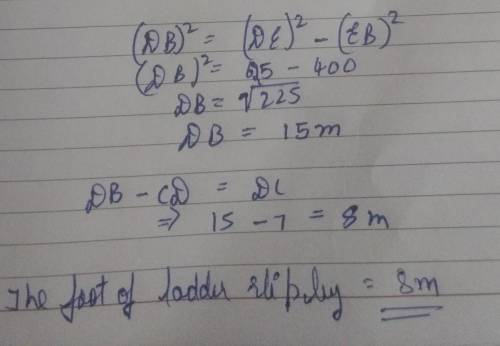 (DB)² = (DE)² - (EB)²
(DB)² = 625 - 400
DB = √225
DB = 15m
DB - CD = DC
⇒ 15 - 7 = 8m
The foot of ladder slip by = 8m